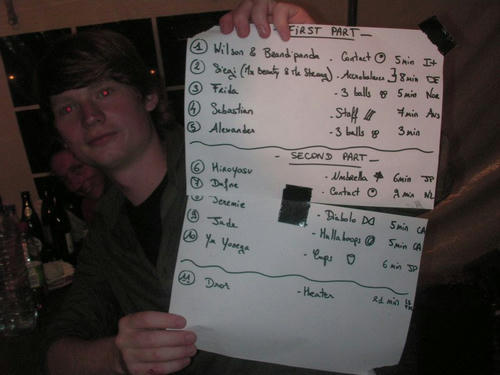 FIRST PART
1 Wilson & Beardipanda - Contact 5 min It
2 Sirgi (The Beauty & the Strong) - Acrobalance 8 min DE
3 Frida - 3 balls 5 min Nor
4 Sebastian - Staff 7 min Aus
5 Alexander - 3 balls 3 min
- SECOND PART -
6 Hiroyasu - Umbrella 6 min JP
7 Dafne - Contact 9 min NL
8 Jeremie - Diabolo 5 min CA
9 Jade - Hallahoops 5 min CA
10 Yu Yonega - Cups 6 min JP
11 Dror - Heater 21 min